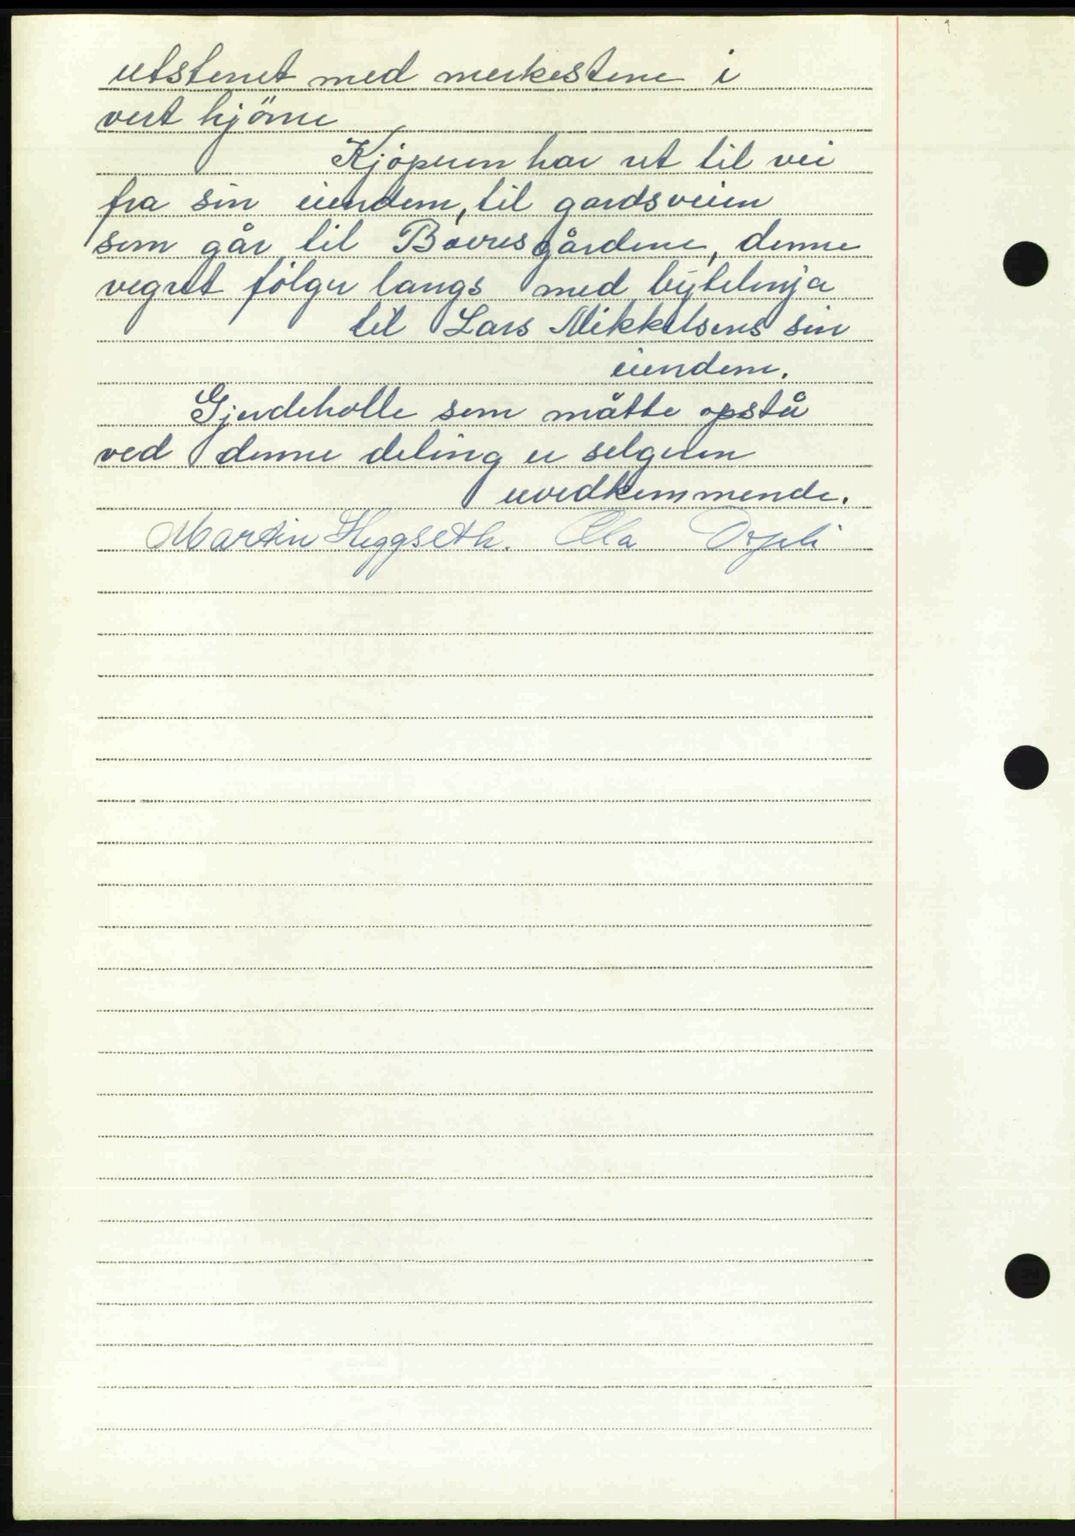 utstenet med merkestene i
vert hjörne
Kjöperen har ret til vei
fra sin eiendem, til gardsveien
som går til Boeresgårdene, denne
vegret fölger langs med bytelinja
til Lars Mikkelsens sin
eiendem.
Gjerdeholle sem måtte opstå
ved denne deling er selgeren
uvedkemmende.
Martin Heggseth. Ola